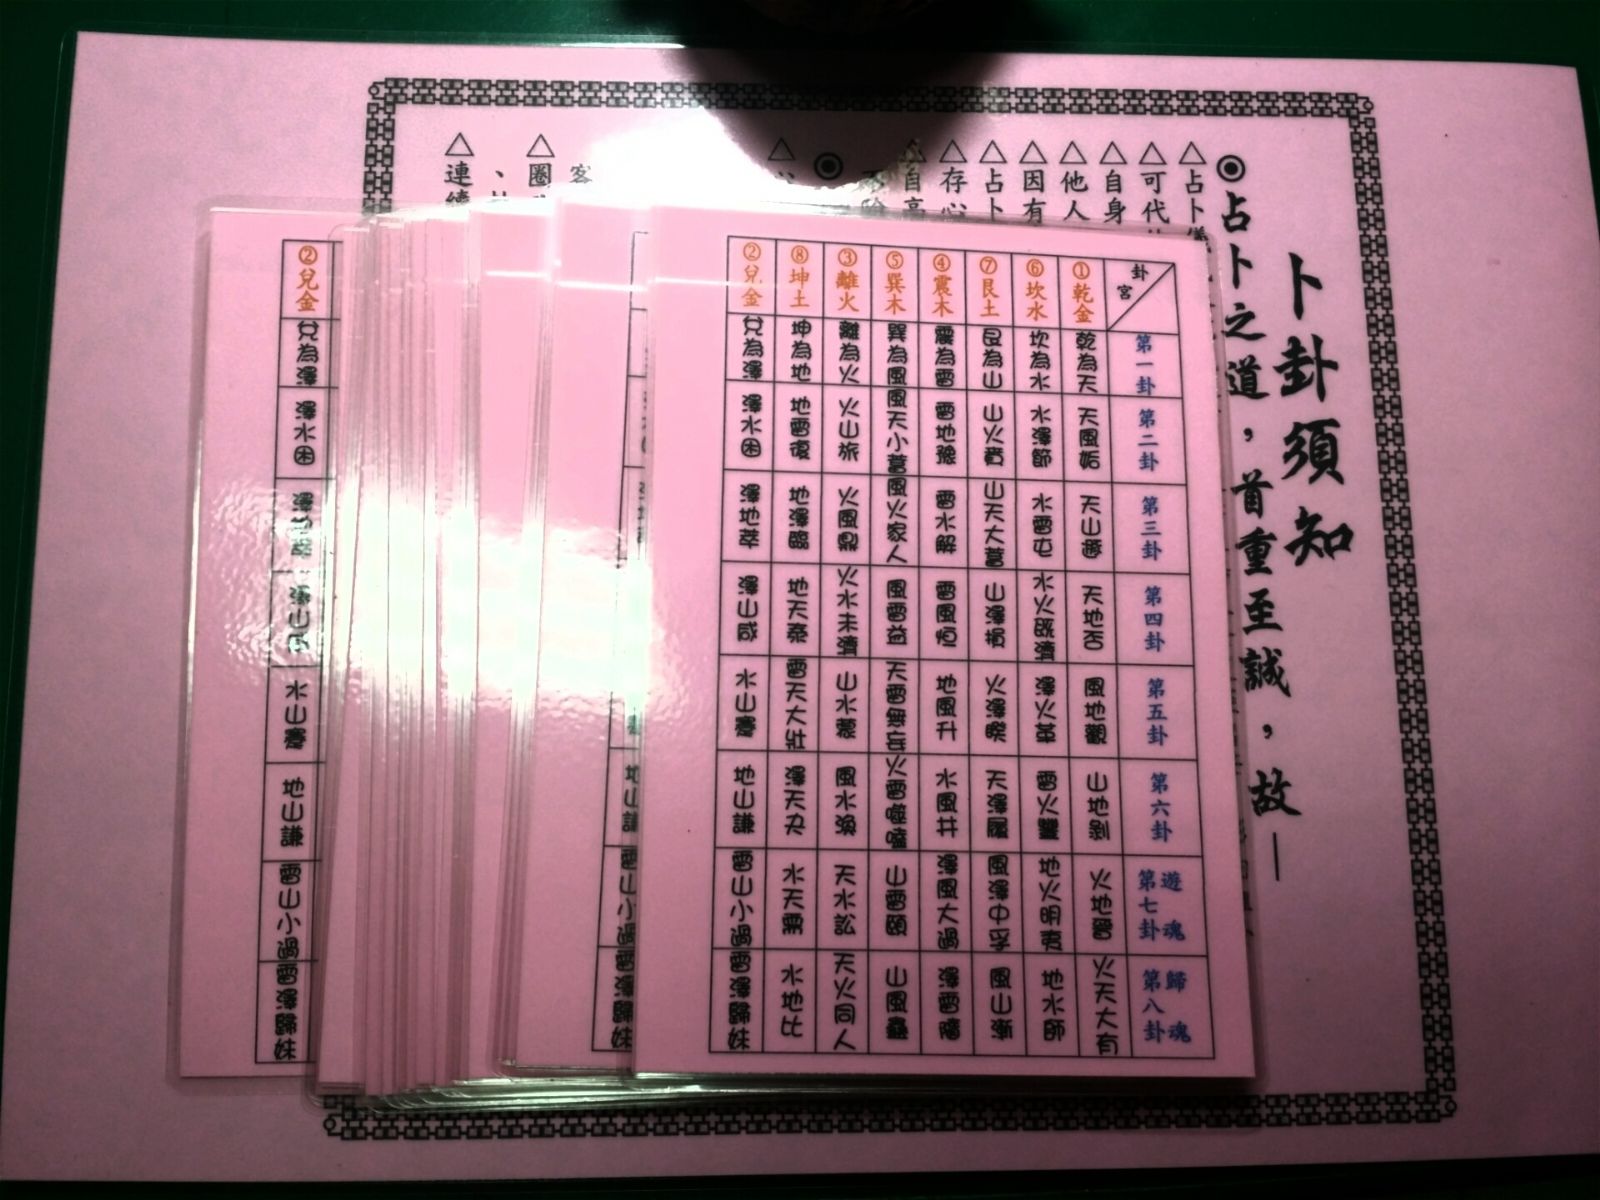 卜卦須知
◉占卜之道，首重至誠，故—
△占卜儀
△可代
△自身
△他人
△因有
△占卜
△存心
自高
客
△圈
△連續
卦宮
第一卦
第二卦
第三卦
第四卦
第五卦
第六卦
遊魂第七卦
歸魂第八卦
①乾金
乾為天
天風姤
天山遯
天地否
風地觀
山地剝
火地晉
火天大有
⑥坎水
坎為水
水澤節
水雷屯
水火既濟
澤火革
雷火豐
地火明夷
地水師
⑦艮土
艮為山
山火賁
山天大畜
山澤損
火澤睽
天澤履
風澤中孚
風山漸
④震木
震為雷
雷地豫
雷水解
雷風恒
地風升
水風井
澤風大過
澤雷隨
⑤巽木
巽為風
風天小畜
風火家人
風雷益
天雷無妄
火雷噬嗑
山雷頤
山風蠱
③離火
離為火
火山旅
火風鼎
火水未濟
山水蒙
風水渙
天水訟
天火同人
⑧坤土
坤為地
地雷復
地澤臨
地天泰
雷天大壯
澤天夬
水天需
水地比
②兌金
兌為澤
澤水困
澤地萃
澤山咸
水山蹇
地山謙
雷山小過
雷澤歸妹
地山謙
雷山小過
雷澤歸妹
②兌金
兌為澤
澤水困
澤地萃
澤山咸
水山蹇
地山謙
雷山小過
雷澤歸妹